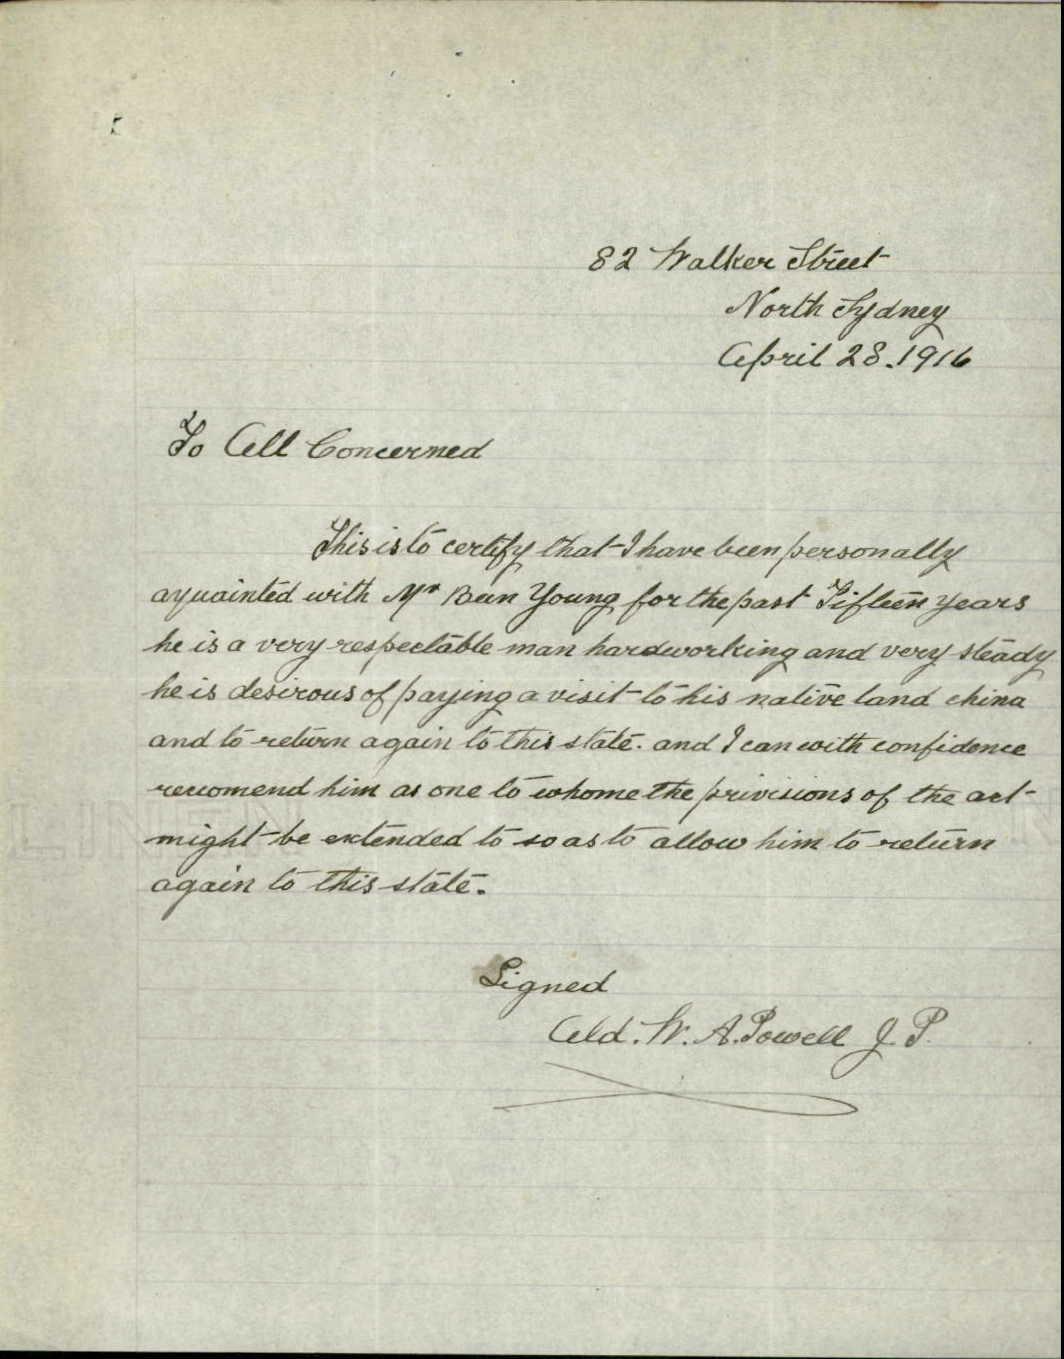 82 Walker Street
North Sydney
April 28. 1916
To All Concerned
This is to certify that I have been personally
aquainted with Mr Bun Young for the past Fifteen years
he is a very respectable man hardworking and very steady
he is desirous of paying a visit to his native land china
and to return again to this state. and I can with confidence
reccomend him as one to whome the privisions of the act
might be extended to so as to allow him to return
again to this state.
Signed
Ald. W. A. Powell J. P.